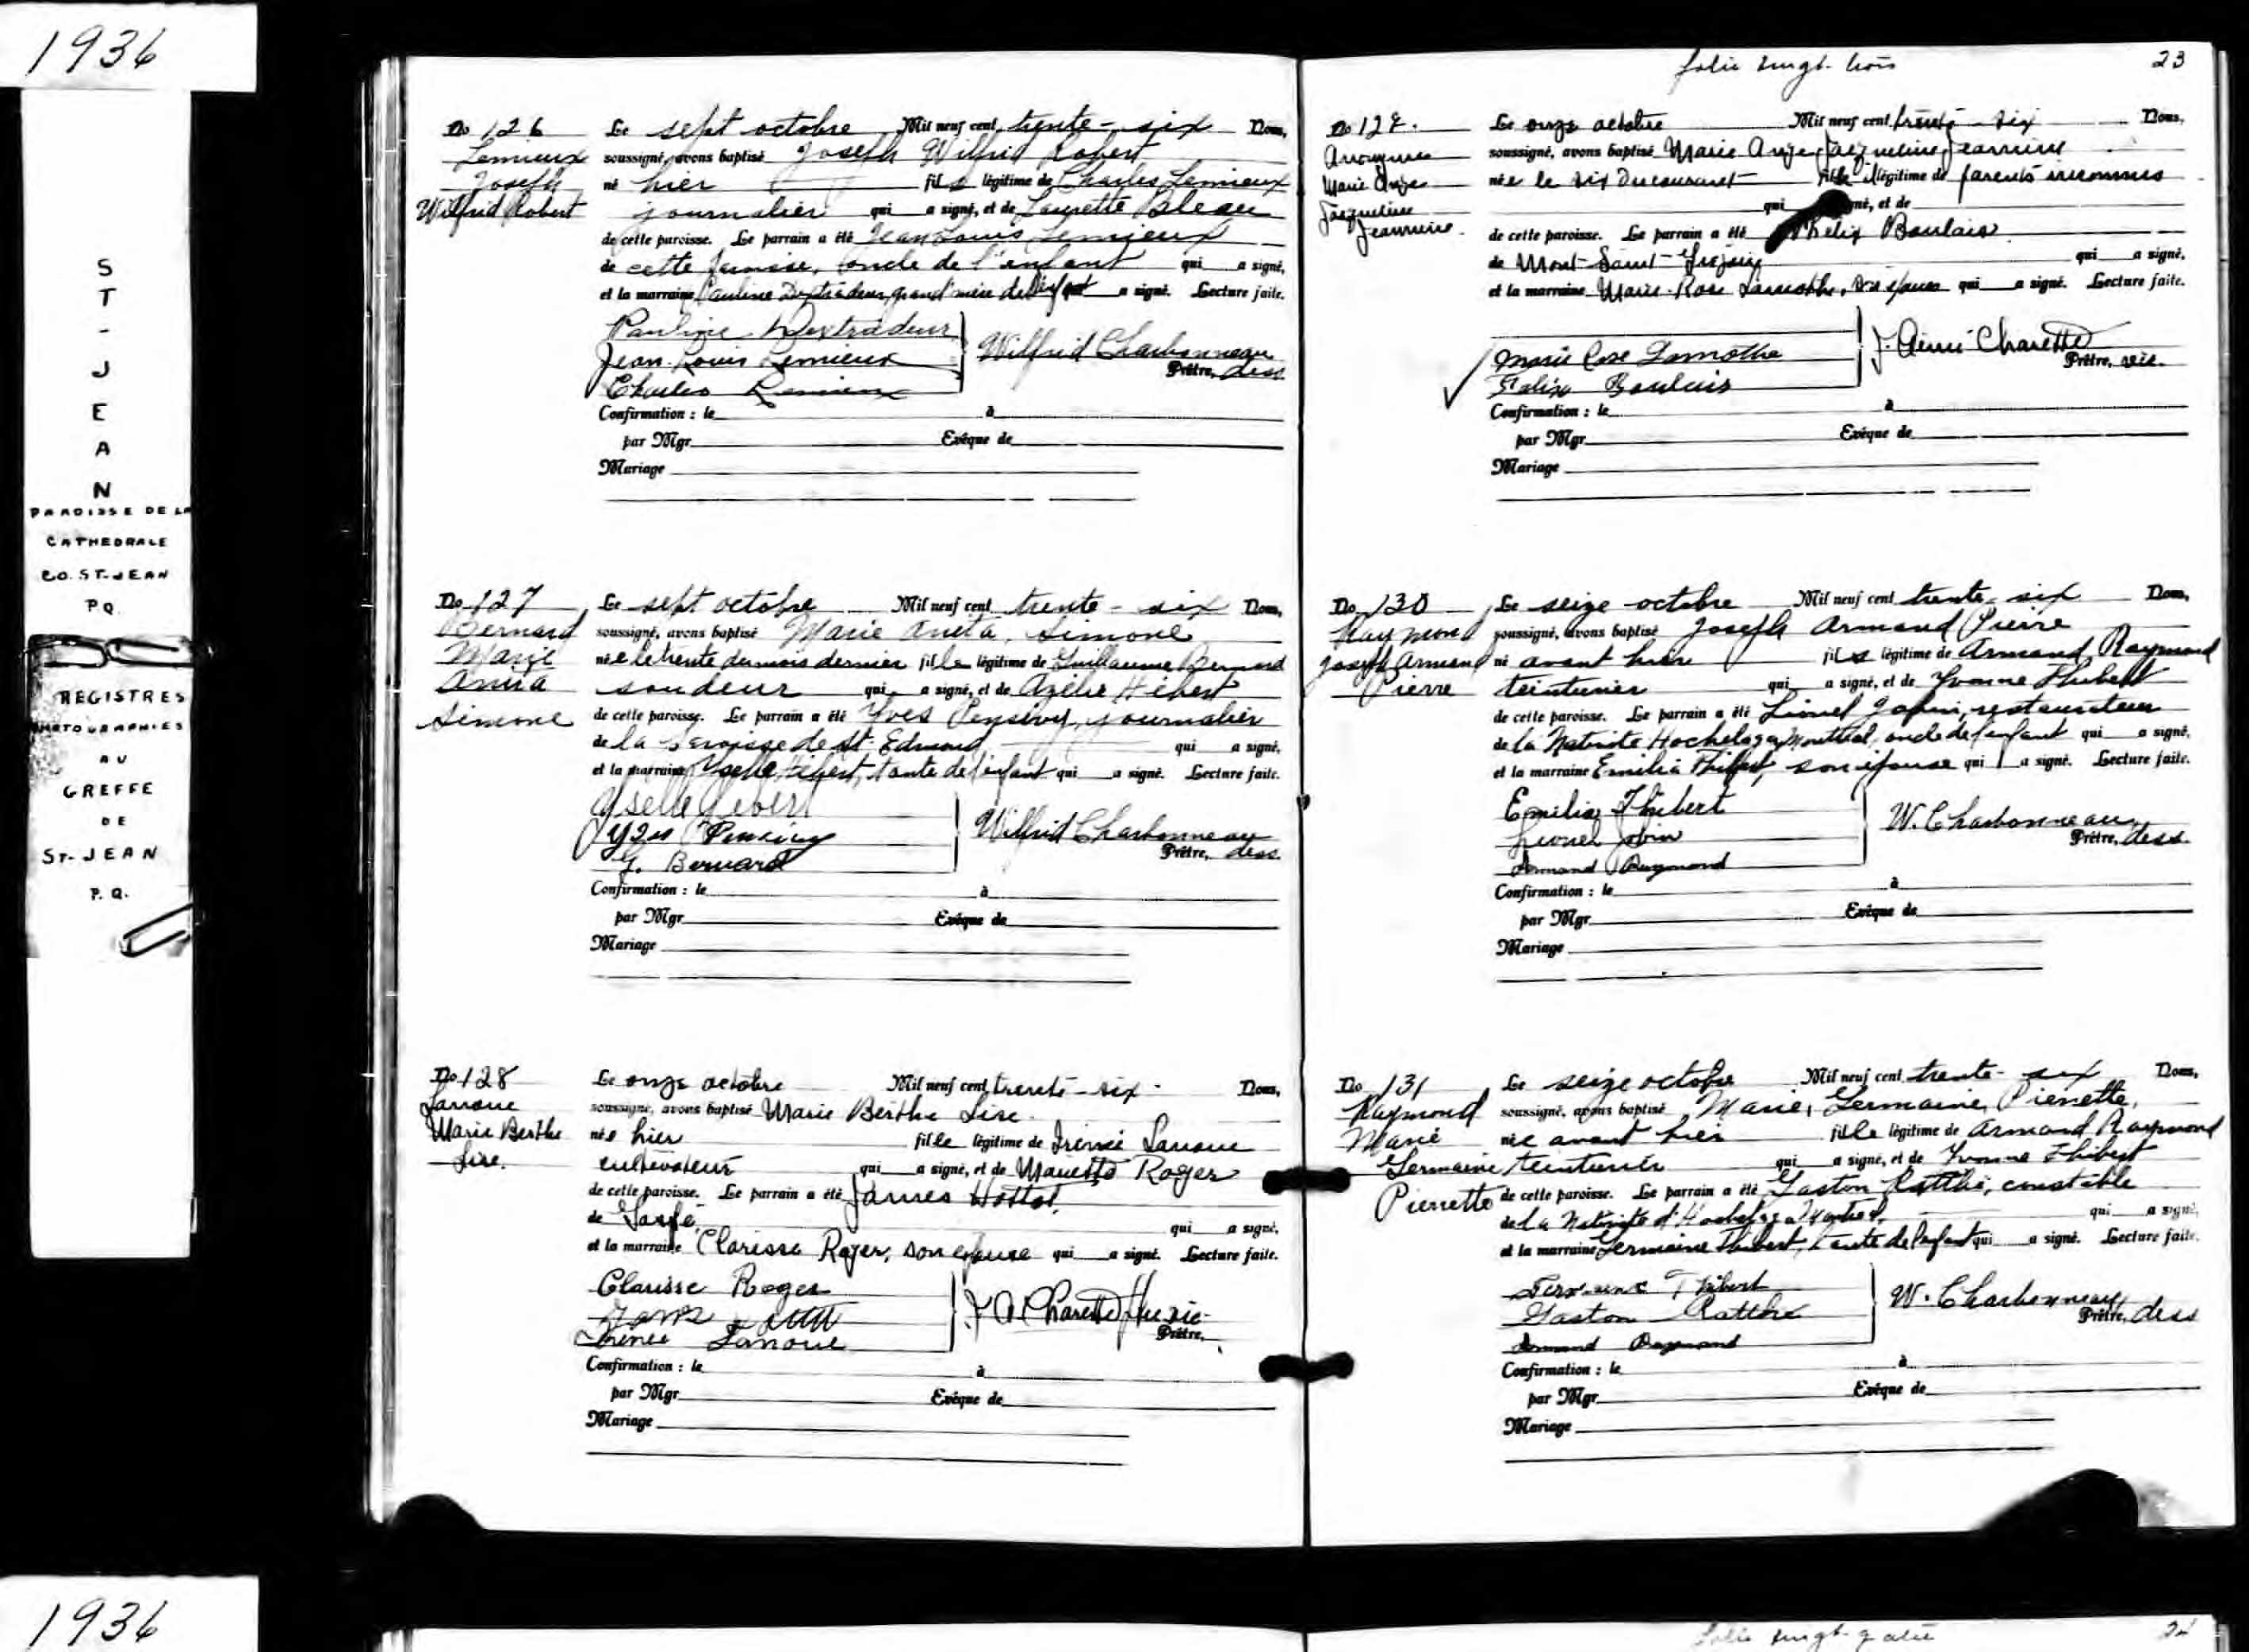 1936
S
T
-
J
E
A
N
PAROISSE DE LA
CATHEDRALE
CO. ST-JEAN
PQ
REGISTRES
PHOTOGRAPHIES
AU
GREFFE
DE
ST-JEAN
P.Q.
1936
No 126
Lemieux
Joseph
Wilfrid Robert
Le sept octobre Mil neuf cent trente-six Nous,
soussigné, avons baptisé Joseph Wilfrid Robert
né hier fils légitime de Charles Lemieux
journalier qui a signé, et de Laurette Bleau
de cette paroisse. Le parrain a été Jean-Louis Lemieux
de cette paroisse, oncle de l'enfant qui a signé,
et la marraine Pauline Dextradeur, grand'mère de l'enfant a signé. Lecture faite.
Pauline Dextradeur
Jean-Louis Lemieux
Charles Lemieux
Wilfrid Charbonneau
Prêtre, dess.
Confirmation : le à
par Mgr Evêque de
Mariage
No 127
Bernard
Marie
Anita
Simone
Le sept octobre Mil neuf cent trente-six Nous,
soussigné, avons baptisé Marie Anita, Simone
née le trente du mois dernier fille légitime de Guillaume Bernard
soudeur qui a signé, et de Azélie Hébert
de cette paroisse. Le parrain a été Yves journalier
de la paroisse de St-Edmond, qui a signé,
et la marraine Yselle Hébert, tante de l'enfant qui a signé. Lecture faite.
Yselle Hébert
Yves
G. Bernard
Wilfrid Charbonneau
Prêtre, dess.
Confirmation : le à
par Mgr Evêque de
Mariage
No 128
Lanoue
Marie Berthe
Lise.
Le onze octobre Mil neuf cent trente-six Nous,
soussigné, avons baptisé Marie Berthe Lise.
née hier fille légitime de Irénée Lanoue
cultivateur qui a signé, et de Mariette Roger
de cette paroisse. Le parrain a été James Hottot.
de Gaspé. qui a signé,
et la marraine Clarisse Roger, son épouse qui a signé. Lecture faite.
Clarisse Roger
James
Irénée Lanoue
J. A. Charette
Prêtre,
Confirmation : le à
par Mgr Evêque de
Mariage
folio vingt-trois 23
No 129.
Anonyme
Marie Ange
Jacqueline
Jeannine.
Le onze octobre Mil neuf cent trente-six Nous,
soussigné, avons baptisé Marie Ange Jacqueline Jeannine
née le six du courant fille illégitime de parents inconnus
qui signé, et de
de cette paroisse. Le parrain a été Phelix Boulais
de Mont-Saint-Grégoire qui a signé,
et la marraine Marie-Rose Lamothe, son épouse qui a signé. Lecture faite.
Marie Rose Lamothe
Félix Boulais
J. Aimé Charette
Prêtre, vic.
Confirmation : le à
par Mgr Evêque de
Mariage
No 130
Raymond
Joseph Armand
Pierre
Le seize octobre Mil neuf cent trente-six Nous,
soussigné, avons baptisé Joseph Armand Pierre
né avant hier fils légitime de Armand Raymond
teinturier qui a signé, et de Yvonne Thibert
de cette paroisse. Le parrain a été Lionel restaurateur
de la Nativité Hochelaga Montréal, oncle de l'enfant qui a signé,
et la marraine Emilia Thibert, son épouse qui a signé. Lecture faite.
Emilia Thibert
Lionel
Armand Raymond
W. Charbonneau,
Prêtre, dess.
Confirmation : le à
par Mgr Evêque de
Mariage
No 131
Raymond
Marie
Germaine
Pierrette
Le seize octobre Mil neuf cent trente-six Nous,
soussigné, avons baptisé Marie, Germaine, Pierrette,
née avant hier fille légitime de Armand Raymond
teinturier qui a signé, et de Yvonne Thibert
de cette paroisse. Le parrain a été Gaston Ratthé, constable
de la Nativité d'Hochelaga Montréal, qui a signé,
et la marraine Germaine Thibert, tante de l'enfant qui a signé. Lecture faite.
Germaine Thibert
Gaston Ratthé
Armand Raymond
W. Charbonneau,
Prêtre, dess
Confirmation : le à
par Mgr Evêque de
Mariage
folio vingt-quatre 24